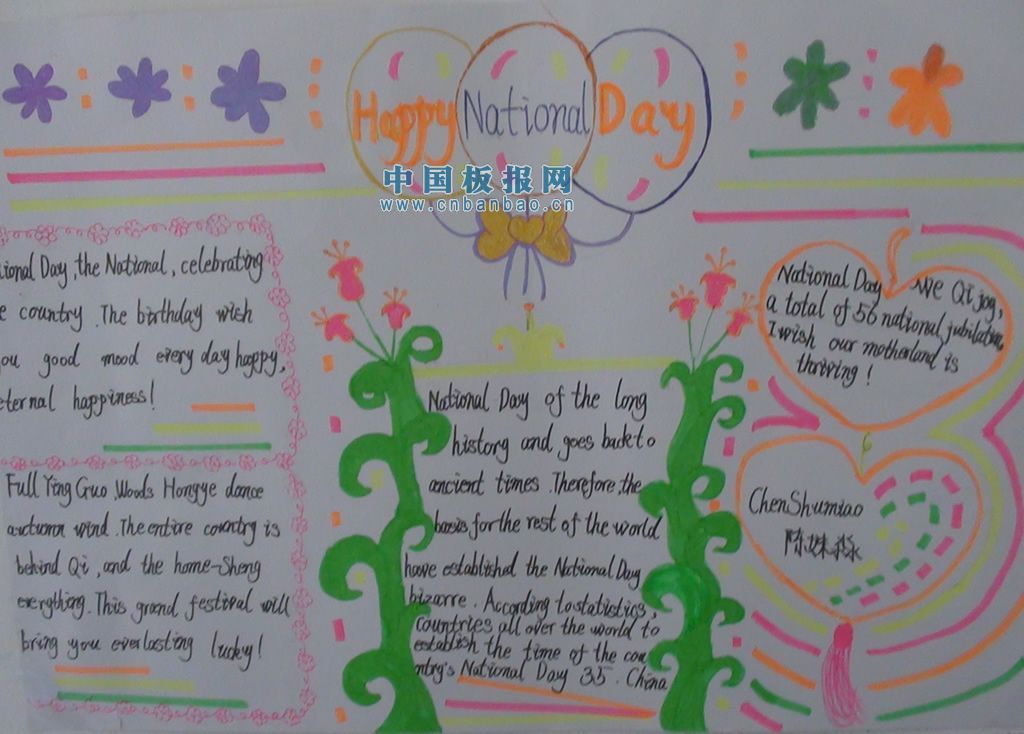 Happy National Day
中国板报网
www.cnbanbao.cn
ional Day, the National, celebrating
e country. The birthday wish
ou good mood every day happy,
eternal happiness!
Full Ying Guo Woods Hongye dance
autumn wind. The entire country is
behind Qi, and the home-Sheng
everything. This grand festival will
bring you everlasting lucky!
National Day of the long
history and goes back to
ancient times. Therefore, the
basis for the rest of the world
have established the National Day
bizarre. According to statistics,
countries all over the world to
establish the time of the cou
ntry's National Day 35. China
National Day We Qi joy,
a total of 56 national jubilation,
I wish our motherland is
thriving!
Chen Shumiao
陈姝淼